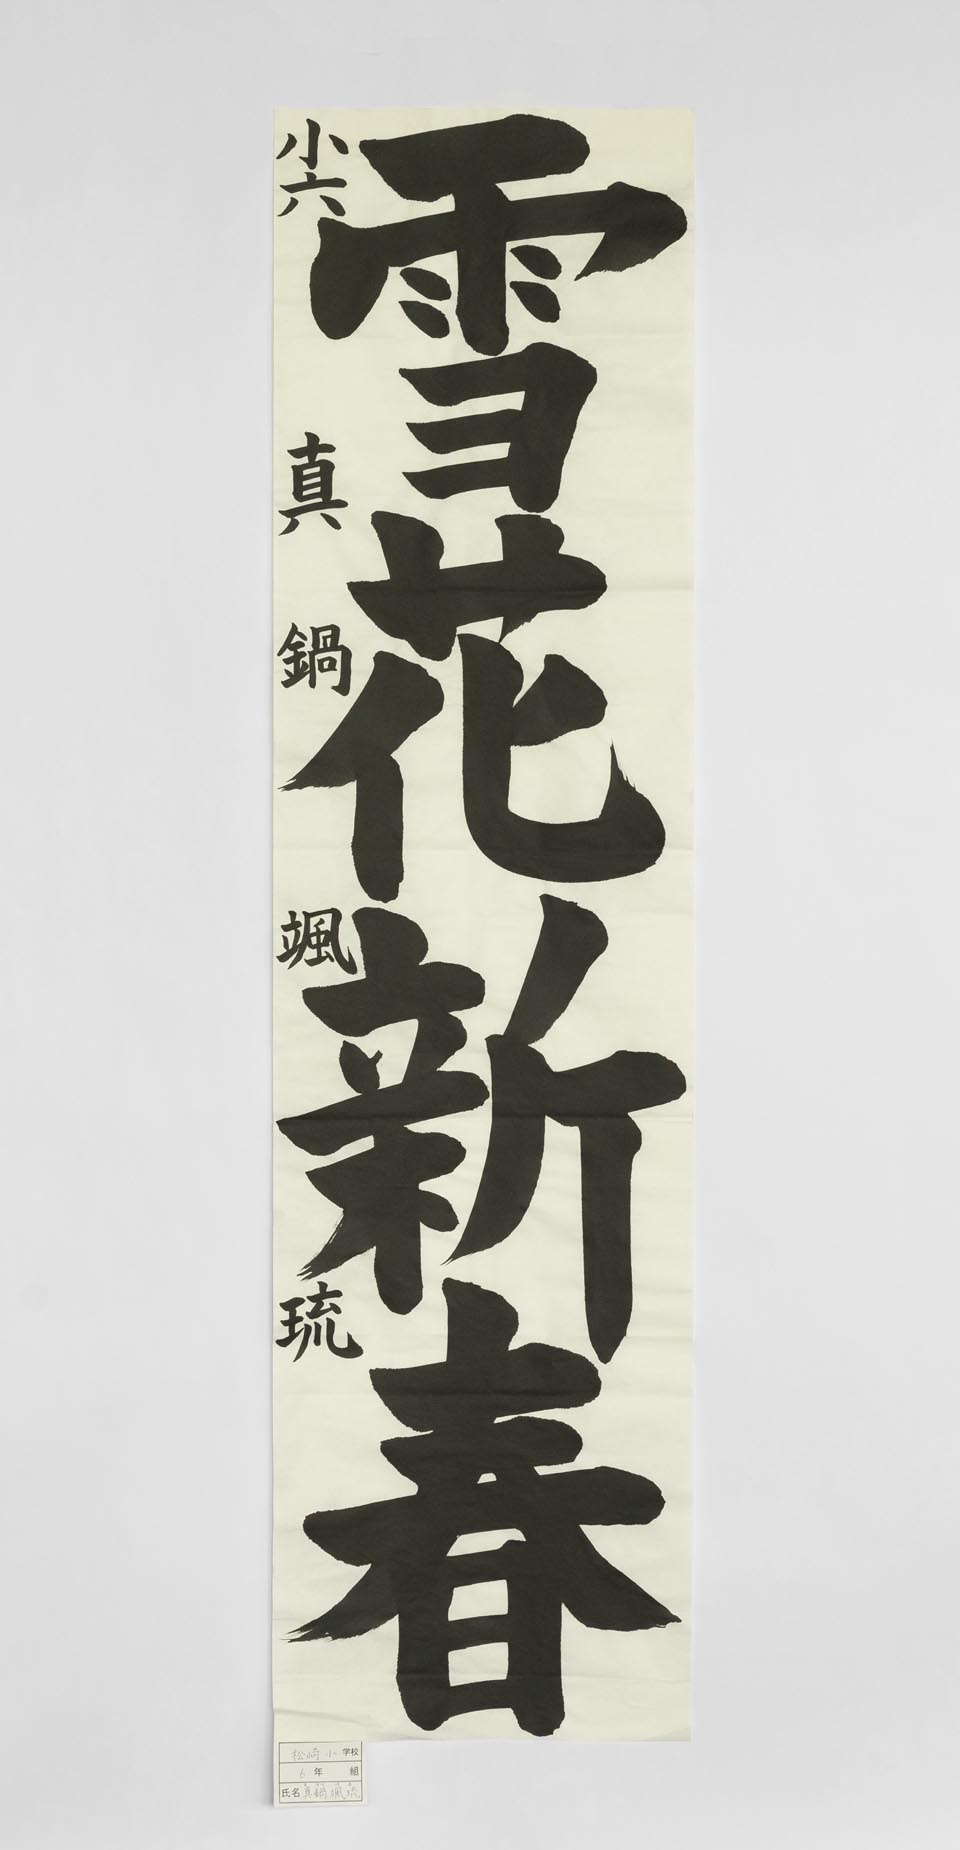 雪花新春
小六 真鍋颯琉
松崎小学校
6年 組
氏名 真鍋颯琉